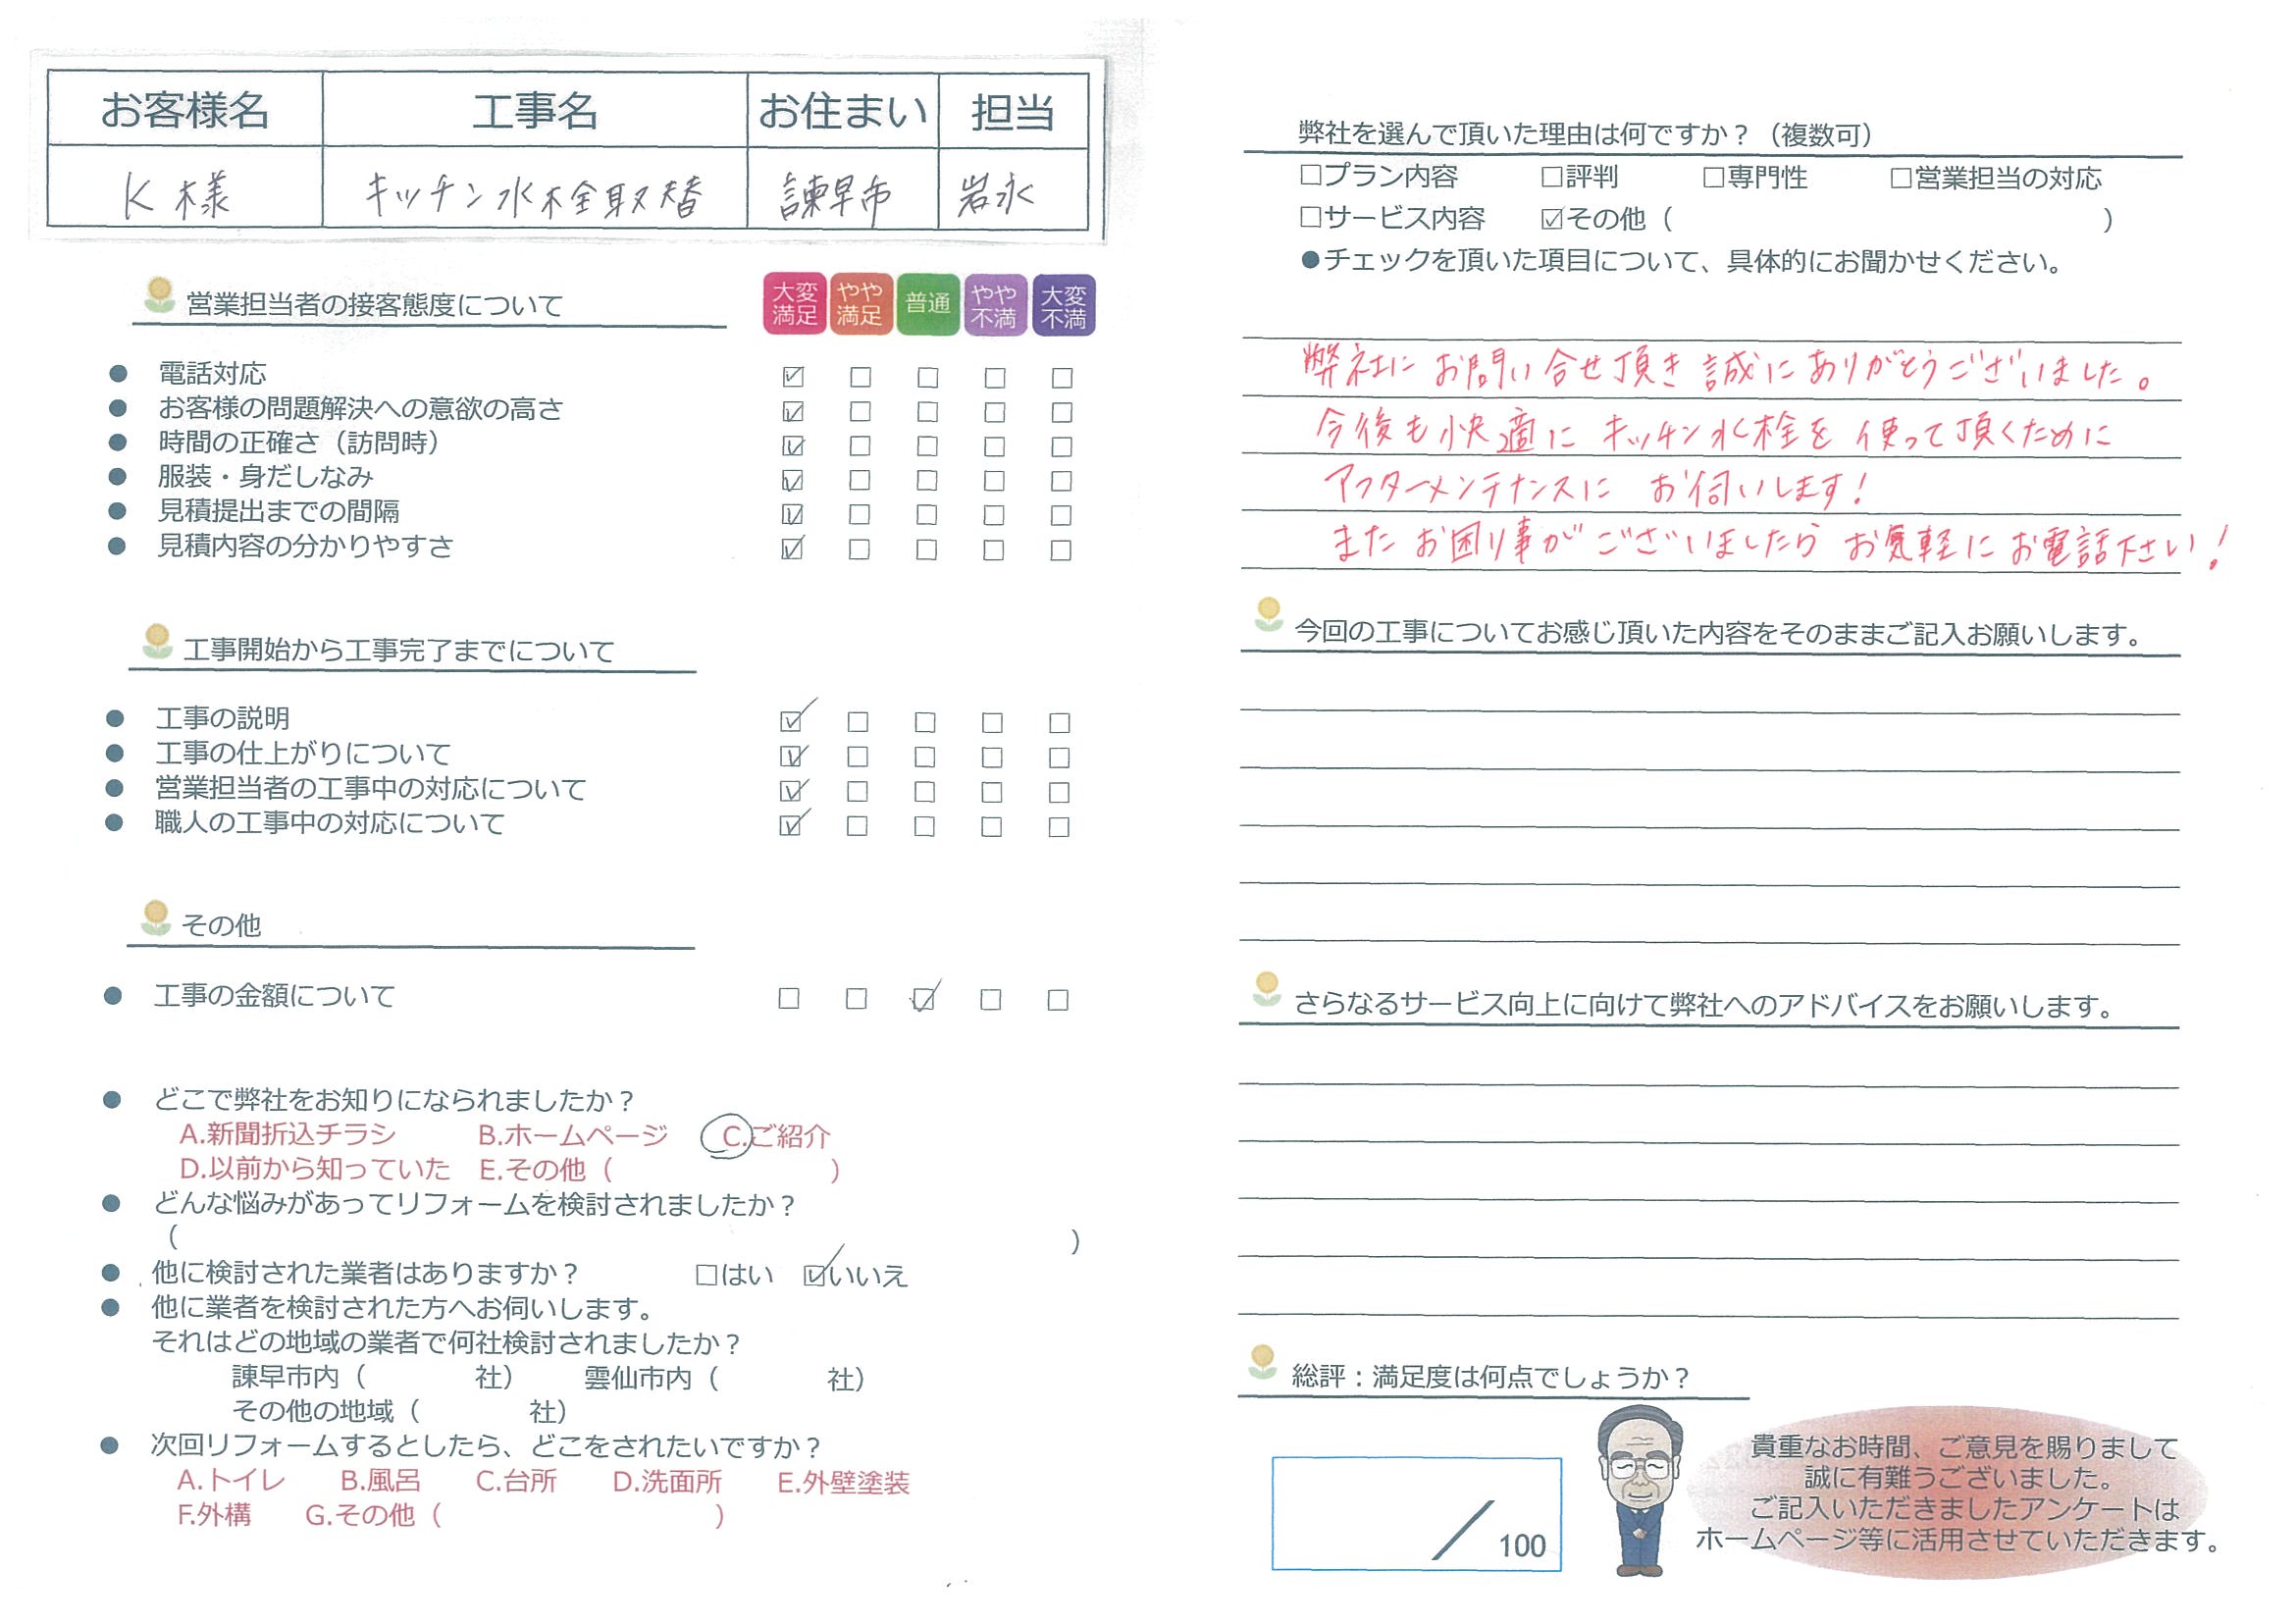 お客様名 工事名 お住まい 担当
K様 キッチン水栓取替 諫早市 岩永
営業担当者の接客態度について
大変満足 やや満足 普通 やや不満 大変不満
● 電話対応 ☑ □ □ □ □
● お客様の問題解決への意欲の高さ ☑ □ □ □ □
● 時間の正確さ（訪問時） ☑ □ □ □ □
● 服装・身だしなみ ☑ □ □ □ □
● 見積提出までの間隔 ☑ □ □ □ □
● 見積内容の分かりやすさ ☑ □ □ □ □
工事開始から工事完了までについて
● 工事の説明 ☑ □ □ □ □
● 工事の仕上がりについて ☑ □ □ □ □
● 営業担当者の工事中の対応について ☑ □ □ □ □
● 職人の工事中の対応について ☑ □ □ □ □
その他
● 工事の金額について □ □ ☑ □ □
● どこで弊社をお知りになられましたか？
A.新聞折込チラシ B.ホームページ C.ご紹介
D.以前から知っていた E.その他（ ）
● どんな悩みがあってリフォームを検討されましたか？
（ ）
● 他に検討された業者はありますか？ □はい ☑いいえ
● 他に業者を検討された方へお伺いします。
それはどの地域の業者で何社検討されましたか？
諫早市内（ 社） 雲仙市内（ 社）
その他の地域（ 社）
● 次回リフォームするとしたら、どこをされたいですか？
A.トイレ B.風呂 C.台所 D.洗面所 E.外壁塗装
F.外構 G.その他（ ）
弊社を選んで頂いた理由は何ですか？（複数可）
□プラン内容 □評判 □専門性 □営業担当の対応
□サービス内容 ☑その他（ ）
●チェックを頂いた項目について、具体的にお聞かせください。
弊社にお問い合せ頂き誠にありがとうございました。
今後も快適にキッチン水栓を使って頂くために
アフターメンテナンスに お伺いします！
またお困り事がございましたら お気軽にお電話下さい！
今回の工事についてお感じ頂いた内容をそのままご記入お願いします。
さらなるサービス向上に向けて弊社へのアドバイスをお願いします。
総評：満足度は何点でしょうか？
／100
貴重なお時間、ご意見を賜りまして
誠に有難うございました。
ご記入いただきましたアンケートは
ホームページ等に活用させていただきます。